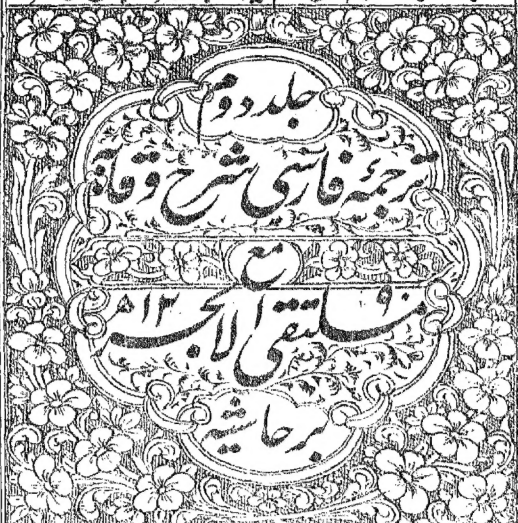 جلد دوم
ترجمۂ فارسی شرح وقایة
مع
ملتقی الابحر
۱۳۰۹ھ
بر حاشیہ